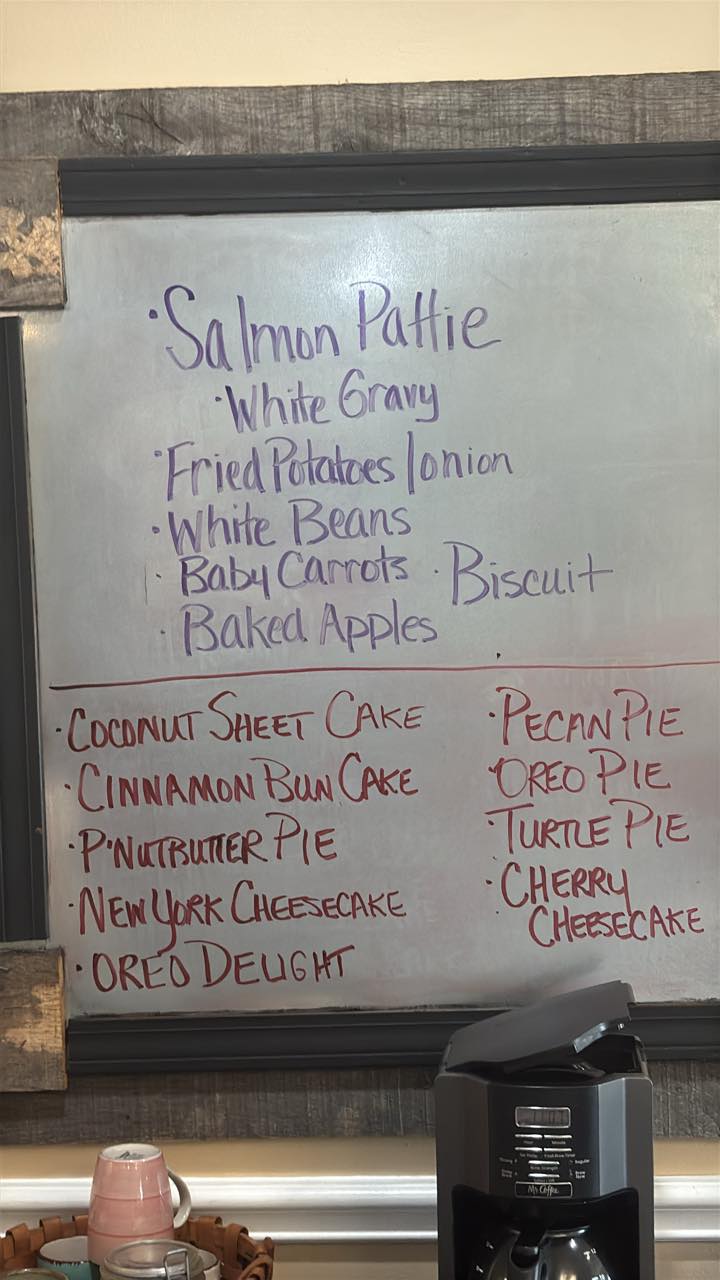 ·Salmon Pattie
·White Gravy
·Fried Potatoes/onion
·White Beans
·Baby Carrots ·Biscuit
·Baked Apples
·COCONUT SHEET CAKE
·CINNAMON BUN CAKE
·P'NUTBUTTER PIE
·NEW YORK CHEESECAKE
·OREO DELIGHT
·PECAN PIE
·OREO PIE
·TURTLE PIE
·CHERRY
CHEESECAKE
Mr. Coffee